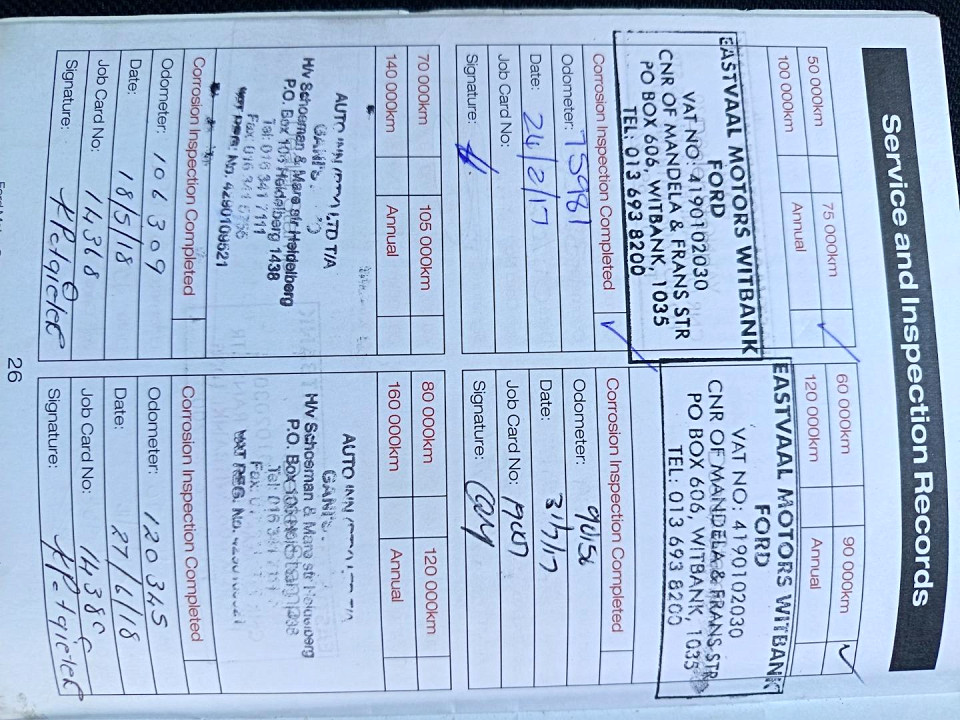 Service and Inspection Records
50 000km
75 000km
100 000km
Annual
EASTVAAL MOTORS WITBANK
FORD
VAT NO: 4190102030
CNR OF MANDELA & FRANS STR
PO BOX 606, WITBANK, 1035
TEL: 013 693 8200
Corrosion Inspection Completed
Odometer: 75981
Date: 24/2/17
Job Card No:
Signature:
60 000km
90 000km
120 000km
Annual
EASTVAAL MOTORS WITBANK
FORD
VAT NO: 4190102030
CNR OF MANDELA & FRANS STR
PO BOX 606, WITBANK, 1035
TEL: 013 693 8200
Corrosion Inspection Completed
Odometer: 90156
Date: 31/7/17
Job Card No:
Signature:
70 000km
105 000km
140 000km
Annual
AUTO INN LTD T/A
H/v Schoeman & Mare str Heidelberg
P.O. Box 103 Heidelberg 1438
Tel: 016 341 7111
Fax: 016
Corrosion Inspection Completed
Odometer: 106309
Date: 18/5/18
Job Card No: 14368
Signature:
80 000km
120 000km
160 000km
Annual
AUTO INN
H/v Schoeman & Mare str Heidelberg
P.O. Box
Tel: 016
Fax:
VAT REG. No.
Corrosion Inspection Completed
Odometer: 120345
Date: 27/6/18
Job Card No:
Signature:
26